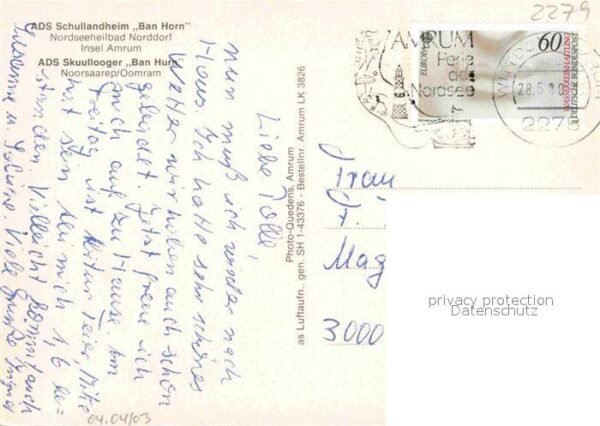 2279
ADS Schullandheim „Ban Horn"
Nordseeheilbad Norddorf
Insel Amrum
ADS Skuullooger „Ban Hurn"
Noorsaarep/Oomram
AMRUM
Perle
der
Nordsee
EUROPA
60
WASSERREINHALTUNG
DEUTSCHE BUNDESPOST
28.5.8
2278
Photo-Quedens, Amrum
as Luftaufn., gen. SH 1-43376 - Bestellnr. Amrum LK 3826
Liebe
nun muß ich wieder nach
Haus. Ich hatte sehr schönes
Wetter, wir haben auch schon
gebadet. Jetzt freue ich
mich auf zu Hause. Am
Freitag ist Abitur Feier, Mitte
mich 1,6 be=
standen. Vielleicht kommt auch
u. Viele Grüße
Frau
F.
Mag
3000
privacy protection
Datenschutz
04.04/03